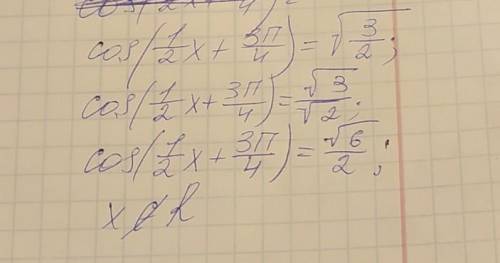 cos(1/2 x + 3π/4) = √(3/2);
cos(1/2 x + 3π/4) = √3/√2;
cos(1/2 x + 3π/4) = √6/2;
x ∉ R